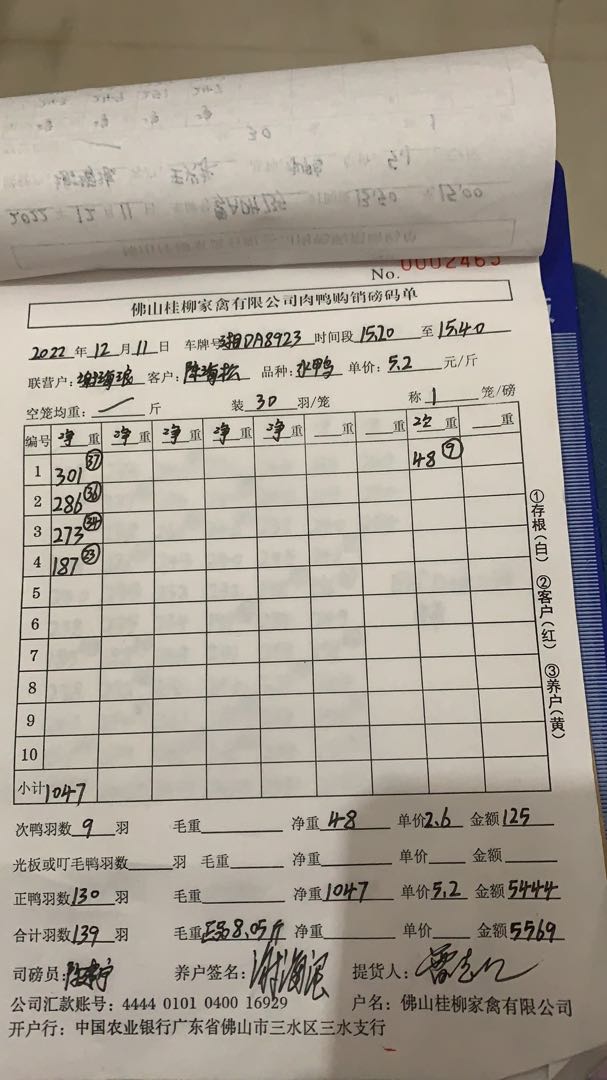 No. 0002465
佛山桂柳家禽有限公司肉鸭购销磅码单
2022年12月11日 车牌号湘DA8923时间段15.20至15.40
联营户:谢海浪 客户:陈海松 品种:水鸭 单价:5.2元/斤
空笼均重:一斤 装30羽/笼 称1笼/磅
编号 净重 净重 净重 净重 净重 重 重 次重 重
1 301 37 48 9
2 286 36
3 273 34
4 187 23
5
6
7
8
9
10
小计 1047
次鸭羽数9羽 毛重 净重48 单价2.6 金额125
光板或叮毛鸭羽数 羽 毛重 净重 单价 金额
正鸭羽数130羽 毛重 净重1047 单价5.2 金额5444
合计羽数139羽 毛重正品8.05斤 净重 单价 金额5569
司磅员: 养户签名:谢海浪 提货人:
公司汇款账号:4444 0101 0400 16929 户名:佛山桂柳家禽有限公司
开户行:中国农业银行广东省佛山市三水区三水支行
①存根(白) ②客户(红) ③养户(黄)